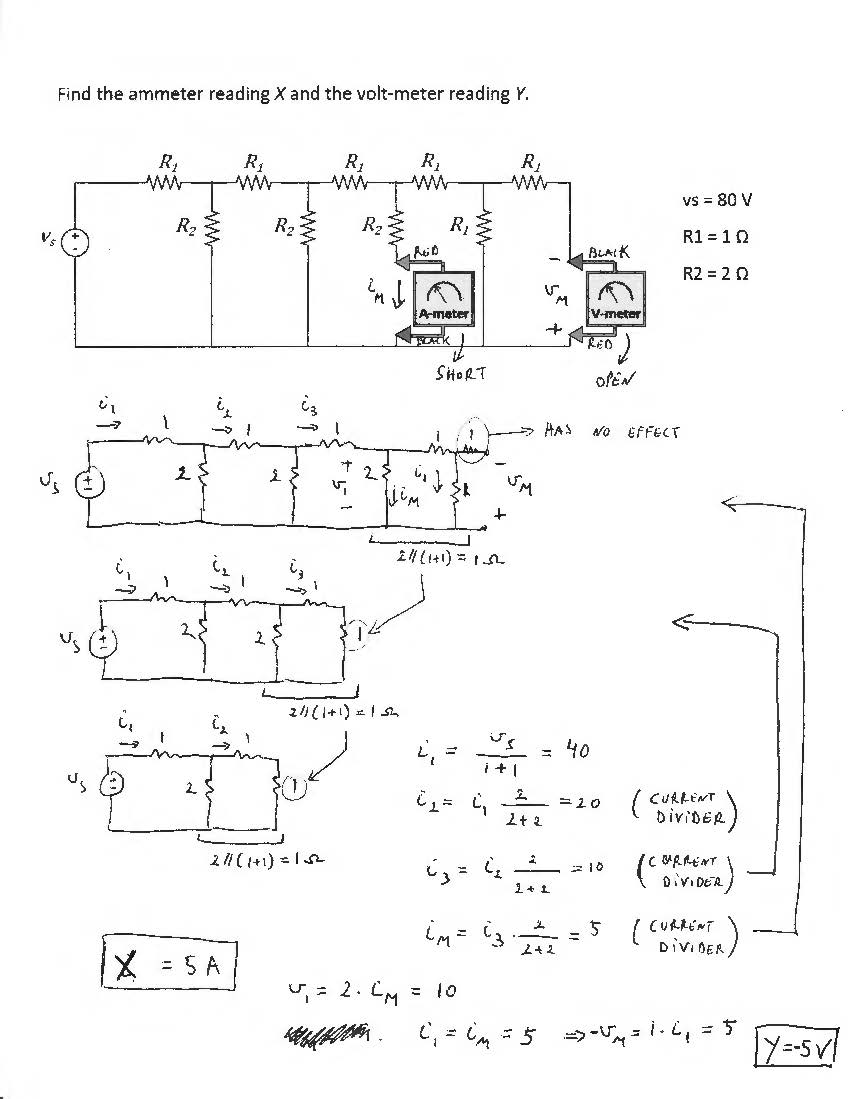 Find the ammeter reading X and the volt-meter reading Y.
R1 R1 R1 R1 R1
vs = 80 V
R2 R2 R2 R1
Vs + -
R1 = 1 Ω
RED BLACK
R2 = 2 Ω
iM A-meter
- VM + V-meter
BLACK RED
SHORT OPEN
i1 1 i2 1 i3 1 1 1 HAS NO EFFECT
vs + - 2 2 + v1 - 2 iM i1 1 - vM +
2//(1+1) = 1 Ω
i1 1 i2 1 i3 1
vs + - 2 2 1
2//(1+1) = 1 Ω
i1 1 i2 1
vs + - 2 1
2//(1+1) = 1 Ω
i1 = vs / 1+1 = 40
i2 = i1 2 / 2+2 = 20 (CURRENT DIVIDER)
i3 = i2 2 / 2+2 = 10 (CURRENT DIVIDER)
iM = i3 · 2 / 2+2 = 5 (CURRENT DIVIDER)
X = 5 A
v1 = 2 · iM = 10
i1 = iM = 5 ⇒ -vM = 1 · i1 = 5
Y = -5 V